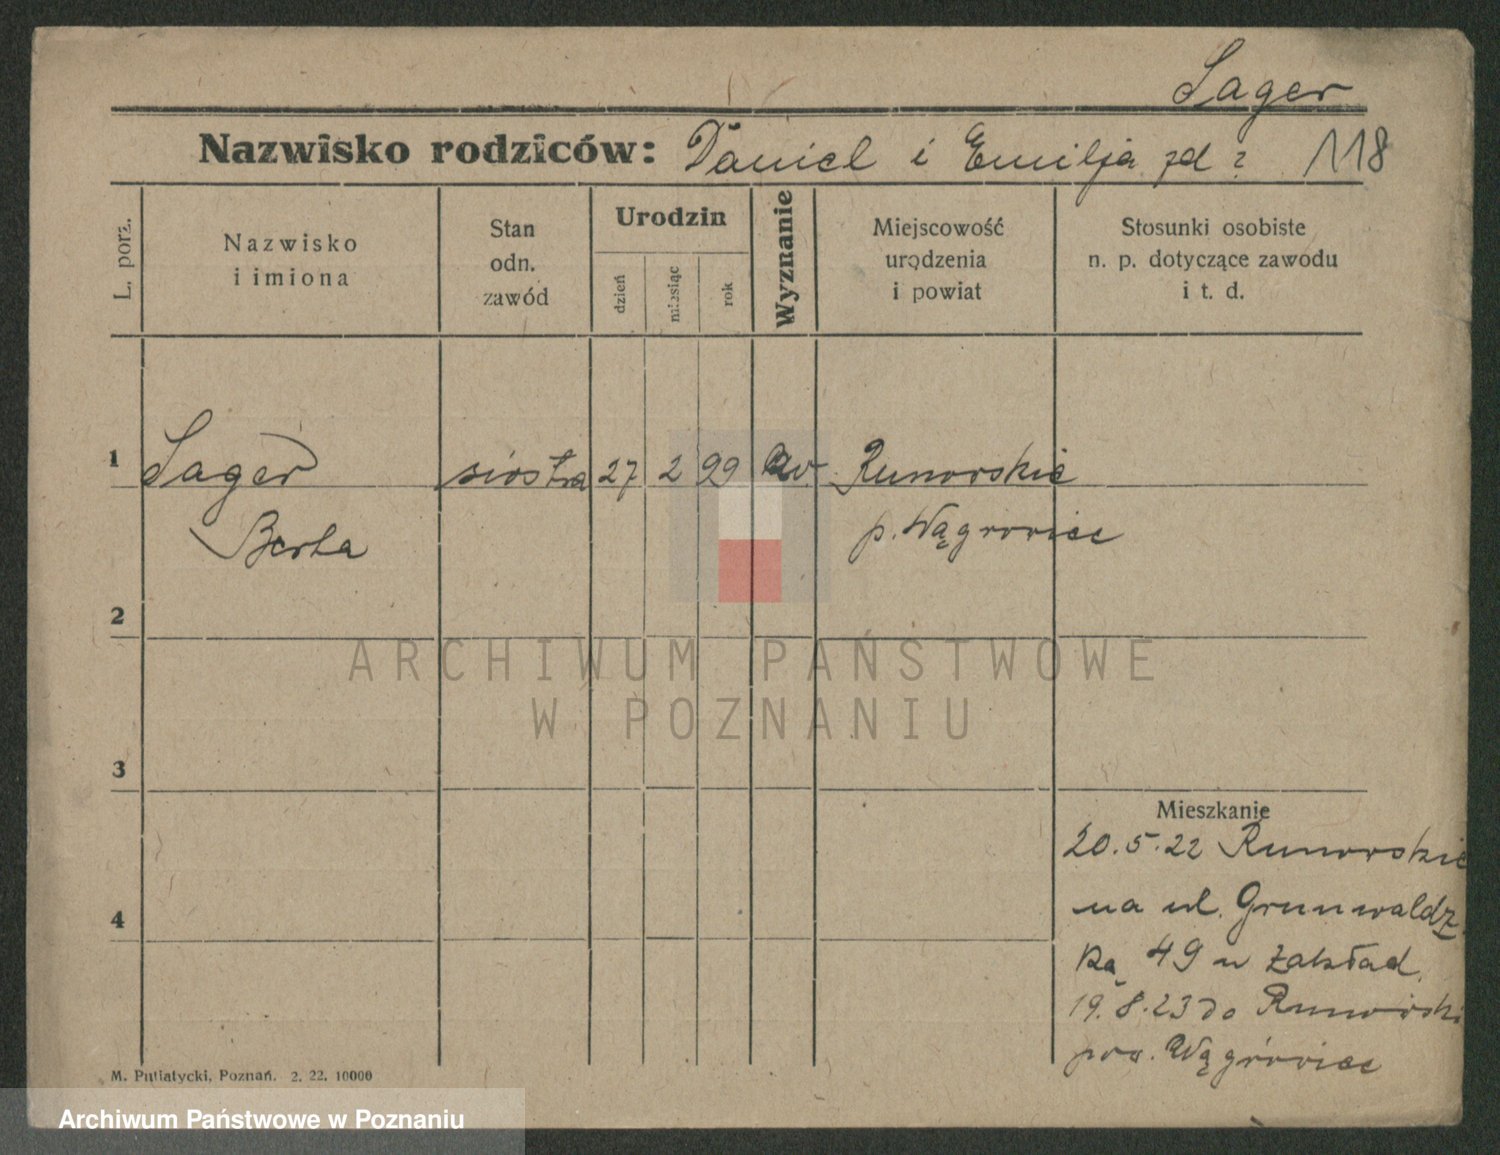 Sager
Nazwisko rodziców: Daniel i Emilja zd ? 118
L. porz.
Nazwisko
i imiona
Stan
odn.
zawód
Urodzin
dzień
miesiąc
rok
Wyznanie
Miejscowość
urodzenia
i powiat
Stosunki osobiste
n. p. dotyczące zawodu
i t. d.
1 Sager siostra 27 2 99 ew Runowskie
Berta p. Wągrowiec
2
ARCHIWUM PAŃSTWOWE
W POZNANIU
3
Mieszkanie
20.5.22 Runowskie
na ul. Grunwaldz
4
ka 49 w zakład.
19.8.23 do Runowski
pow. Wągrowiec
M. Putiatycki, Poznań. 2. 22. 10000
Archiwum Państwowe w Poznaniu